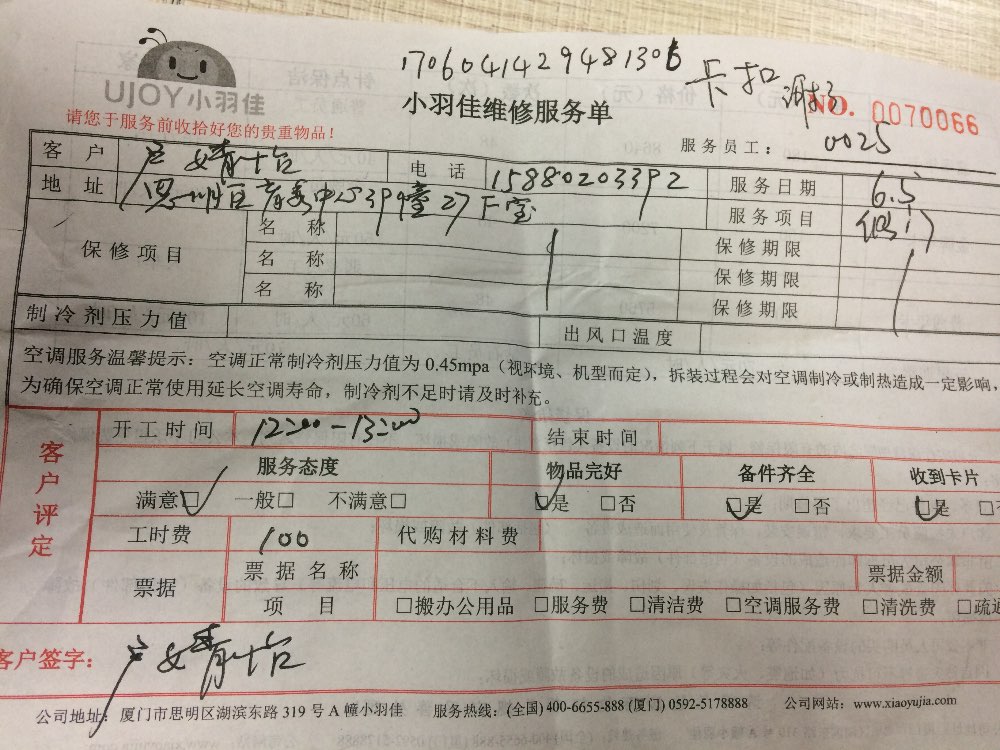 17060414294481306 卡扣
UJOY小羽佳
小羽佳维修服务单
NO. 0070066
请您于服务前收拾好您的贵重物品！
服务员工： 0025
客户 电话 15880203392 服务日期 6.5
地址 服务项目
保修项目 名称 保修期限
名称 保修期限
名称 保修期限
制冷剂压力值 出风口温度
空调服务温馨提示：空调正常制冷剂压力值为 0.45mpa（视环境、机型而定），拆装过程会对空调制冷或制热造成一定影响，
为确保空调正常使用延长空调寿命，制冷剂不足时请及时补充。
客户评定
开工时间 12:00-13:00 结束时间
服务态度 物品完好 备件齐全 收到卡片
满意□ 一般□ 不满意□ □是 □否 □是 □否 □是 □否
工时费 100 代购材料费
票据 票据名称 票据金额
项目 □搬办公用品 □服务费 □清洁费 □空调服务费 □清洗费 □疏通
客户签字：
公司地址：厦门市思明区湖滨东路 319 号 A 幢小羽佳 服务热线：(全国) 400-6655-888 (厦门) 0592-5178888 公司网站：www.xiaoyujia.com